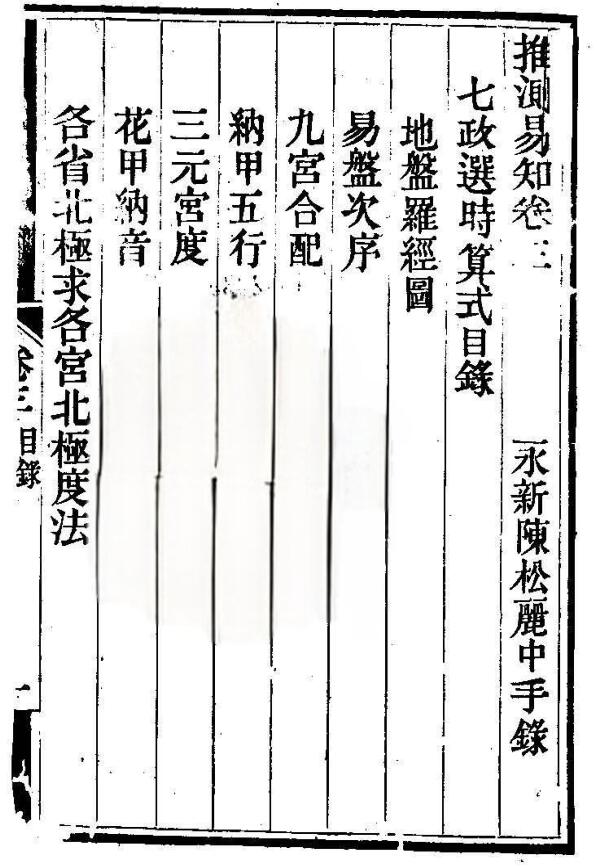 推測易知卷三
永新陳松麗中手錄
七政選時算式目錄
地盤羅經圖
易盤次序
九宮合配
納甲五行
三元宮度
花甲納音
各省北極求各宮北極度法
卷三目錄
一